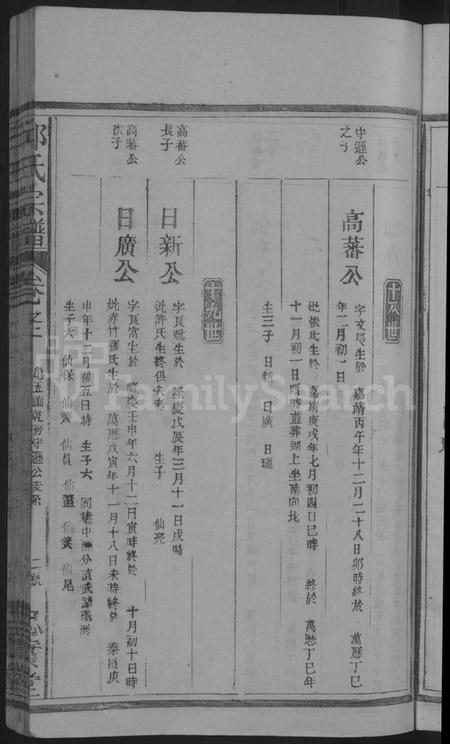 十八世
守遜公之子
高蕃公
字文辰生於 嘉靖丙午年十二月二十八日卯時終於 萬曆丁巳
年二月初一日
妣張氏生於 嘉靖庚戌年七月初四日巳時 終於 萬曆丁巳年
十一月初一日酉時並葬湖上坐南向北
生三子 日新 日廣 日
十九世
高蕃公長子
日新公
字長 生於 隆慶戊辰年三月十一日戌時
妣許氏生終俱失考 生子 仙亮
高蕃公次子
日廣公
字長富生於 隆慶壬申年六月十二日寅時終於 十月初十日時
妣 竹張氏生於 萬曆戊寅年十一月十八日未時終於 泰昌庚
申年十一月初五日時 生子六 同塟中洲分 真武 龜形
生子六 仙保 仙 仙員 仙 仙 仙尾
氏宗譜
卷之
守遜公支系
FamilySearch